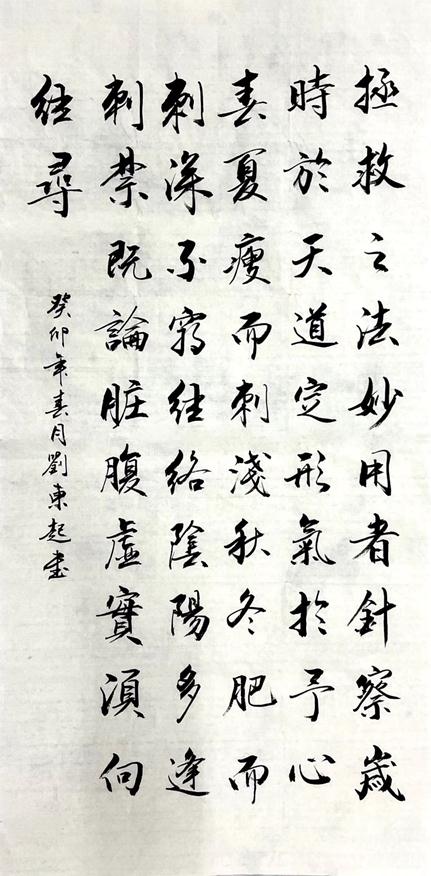 拯救之法妙用者針察歲
時於天道定形氣於予心
春夏瘦而刺淺秋冬肥而
刺深不窮经絡陰陽多逢
刺禁既論脏腹虛實須向
经尋
癸卯年春月劉東起書